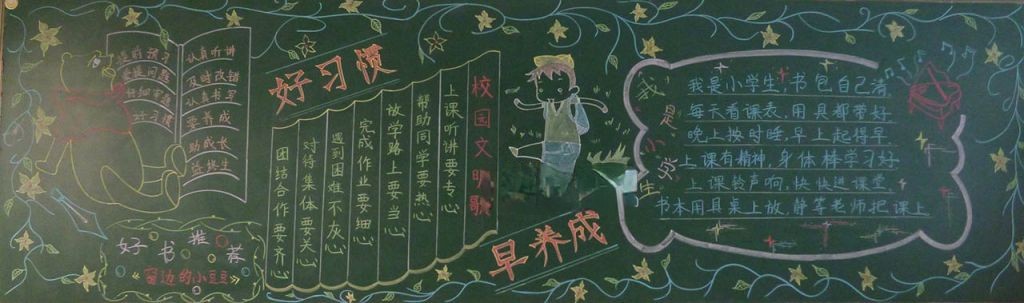 课前预习
要提问题
仔细审题
好习惯
认真听讲
及时改错
认真书写
要养成
助成长
好习惯
早养成
校园文明歌
上课听讲要专心
帮助同学要热心
放学路上要当心
完成作业要细心
遇到困难不灰心
对待集体要关心
团结合作要齐心
好书推荐
《窗边的小豆豆》
我是小学生
我是小学生,书包自己背
每天看课表,用具都带好
晚上按时睡,早上起得早
上课有精神,身体棒学习好
上课铃声响,快快进课堂
书本用具桌上放,静等老师把课上